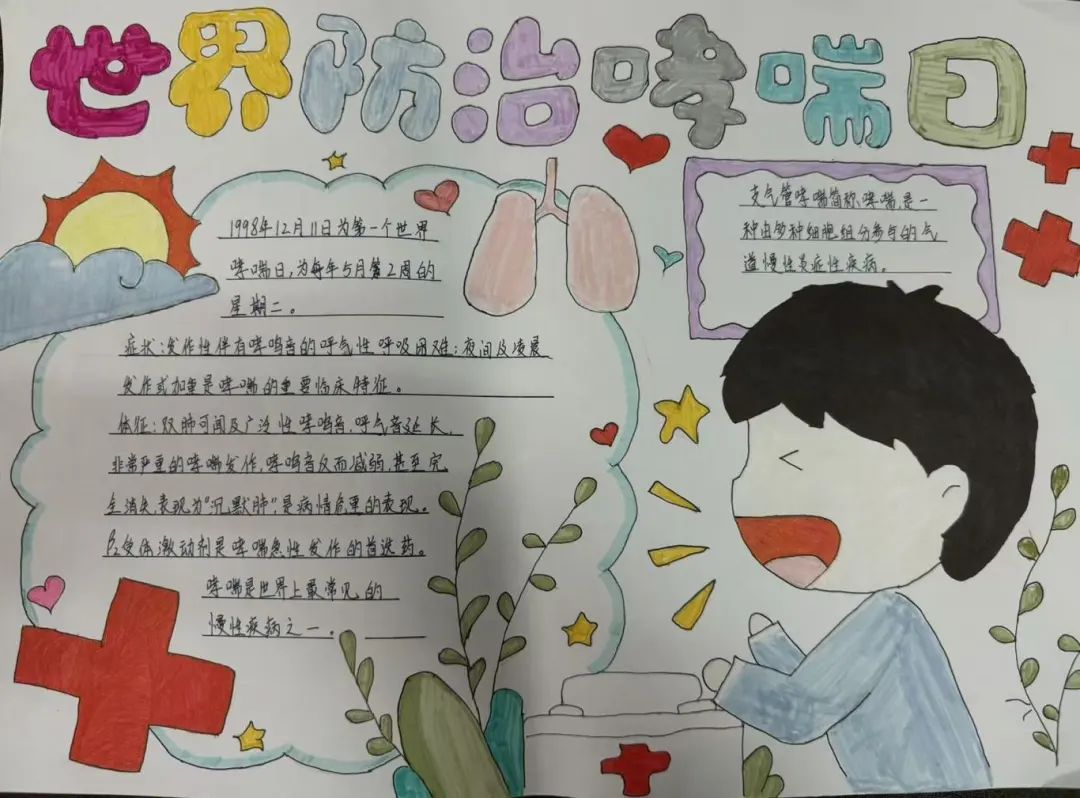 世界防治哮喘日
1998年12月11日为第一个世界
哮喘日,为每年5月第2周的
星期二。
症状:发作性伴有哮鸣音的呼气性呼吸困难;夜间及凌晨
发作或加重是哮喘的重要临床特征。
体征:双肺可闻及广泛性哮鸣音,呼气音延长,
非常严重的哮喘发作,哮鸣音反而减弱,甚至完
全消失,表现为“沉默肺”,是病情危重的表现。
β2受体激动剂是哮喘急性发作的首选药。
哮喘是世界上最常见的
慢性疾病之一。
支气管哮喘简称哮喘,是一
种由多种细胞组分参与的气
道慢性炎症性疾病。